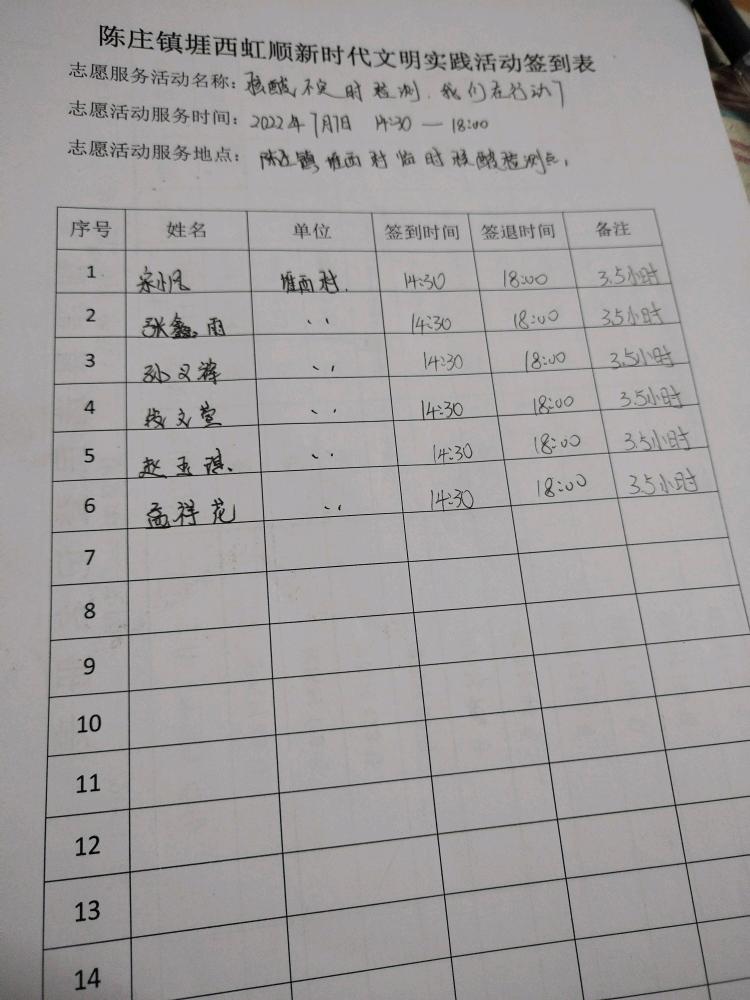 陈庄镇堐西虹顺新时代文明实践活动签到表
志愿服务活动名称：核酸不定时检测，我们在行动
志愿活动服务时间：2022年7月7日 14:30 — 18:00
志愿活动服务地点：陈庄镇堐西村临时核酸检测点，
序号 姓名 单位 签到时间 签退时间 备注
1 宋小凡 堐西村. 14:30 18:00 3.5小时
2 张鑫雨 、、 14:30 18:00 3.5小时
3 孙义 、、 14:30 18:00 3.5小时
4 文萱 、、 14:30 18:00 3.5小时
5 赵玉琪 、、 14:30 18:00 3.5小时
6 孟祥花 、、 14:30 18:00 3.5小时
7
8
9
10
11
12
13
14